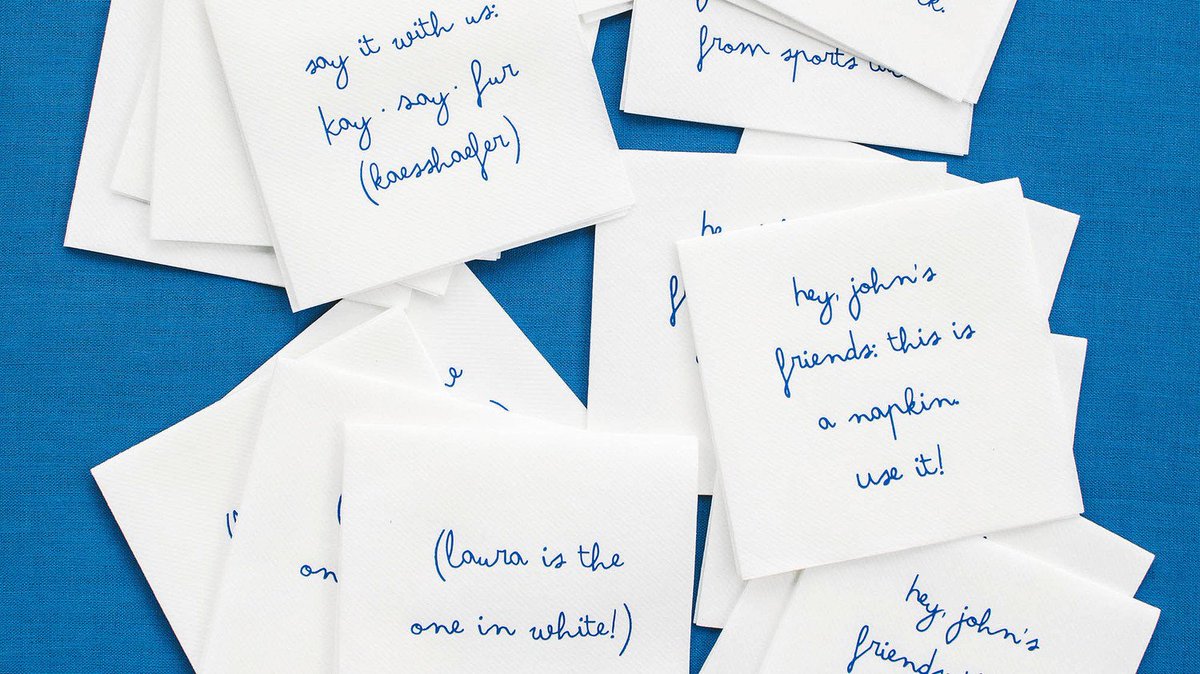 say it with us:
kay · say · fur
(kaesshaefer)
from sports
hey, john's
friends: this is
a napkin.
use it!
(laura is the
one in white!)
on
hey, john's